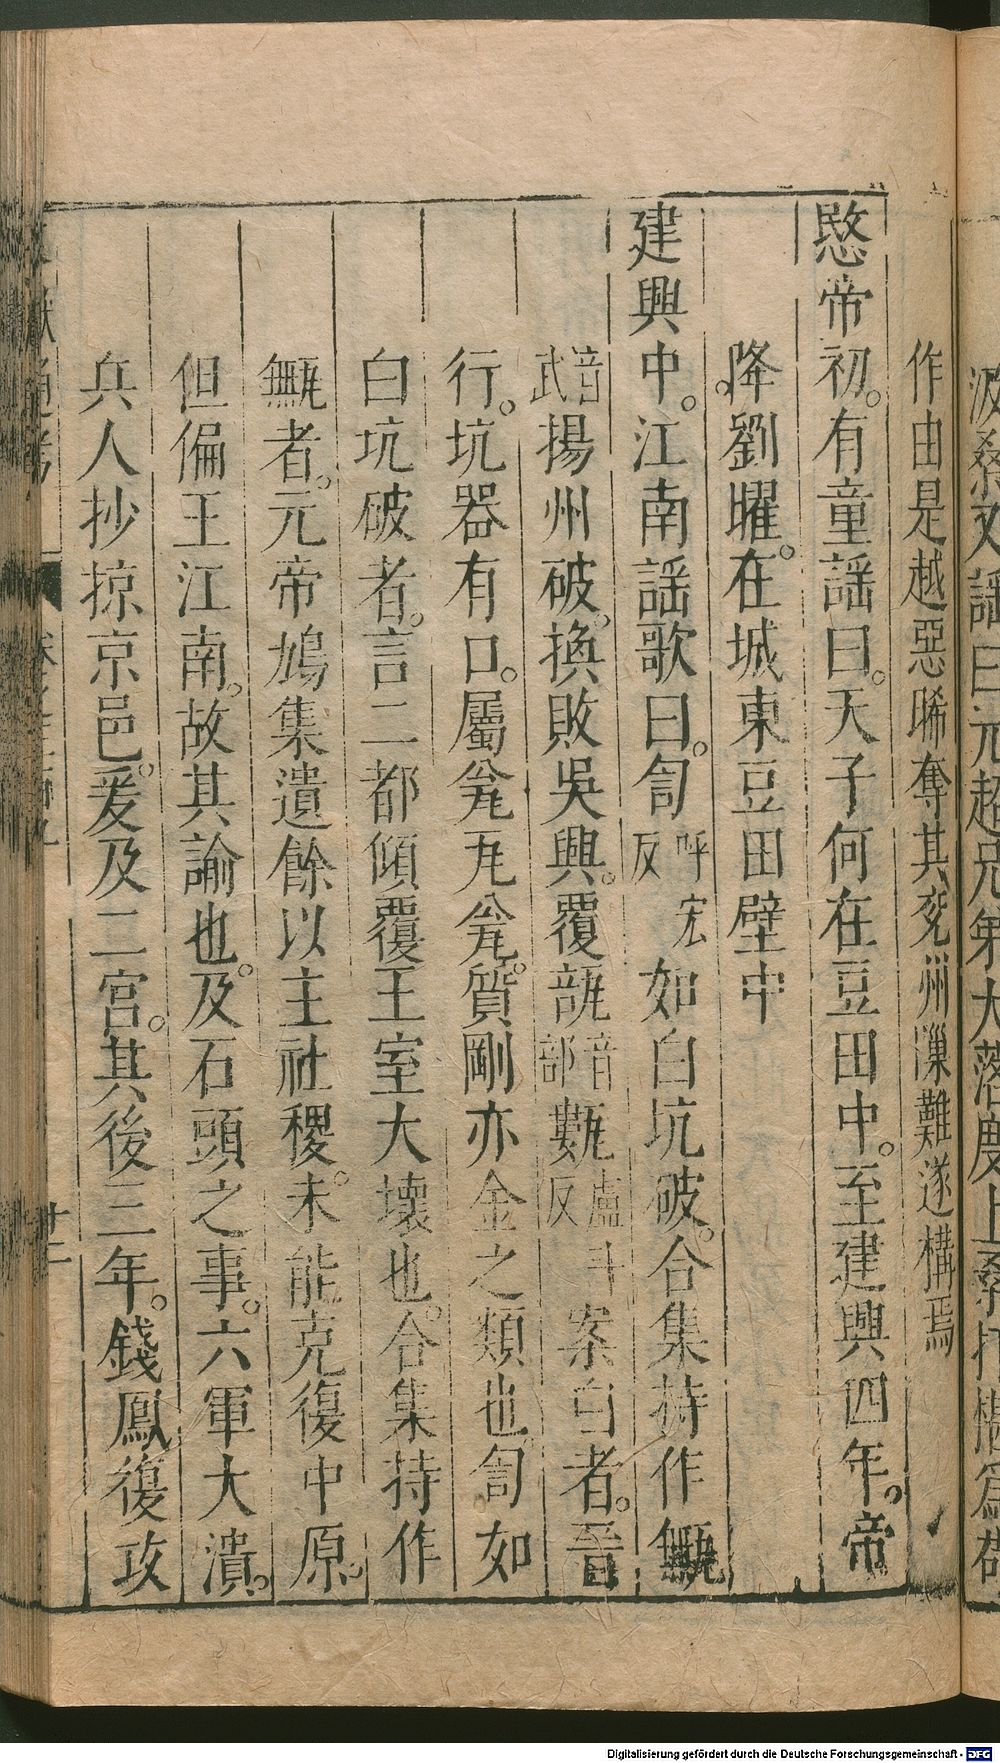 作由是越惡晞奪其兖州潬難遂構焉
愍帝初。有童謡曰。天子何在豆田中。至建興四年。帝
降劉曜。在城東豆田壁中
建興中。江南謡歌曰。訇呼宏反如白坑破。合集持作甒
音武揚州破。換敗吳興。覆瓿音部㼾盧斗反案白者。晉
行。坑器有口。屬瓮瓦瓮。質剛亦金之類也。訇如
白坑破者。言二都傾覆王室大壞也。合集持作
甒者。元帝鳩集遺餘以主社稷。未能克復中原。
但偏王江南。故其諭也。及石頭之事。六軍大潰。
兵人抄掠京邑。爰及二宮。其後三年。錢鳳復攻
Digitalisierung gefördert durch die Deutsche Forschungsgemeinschaft - DFG